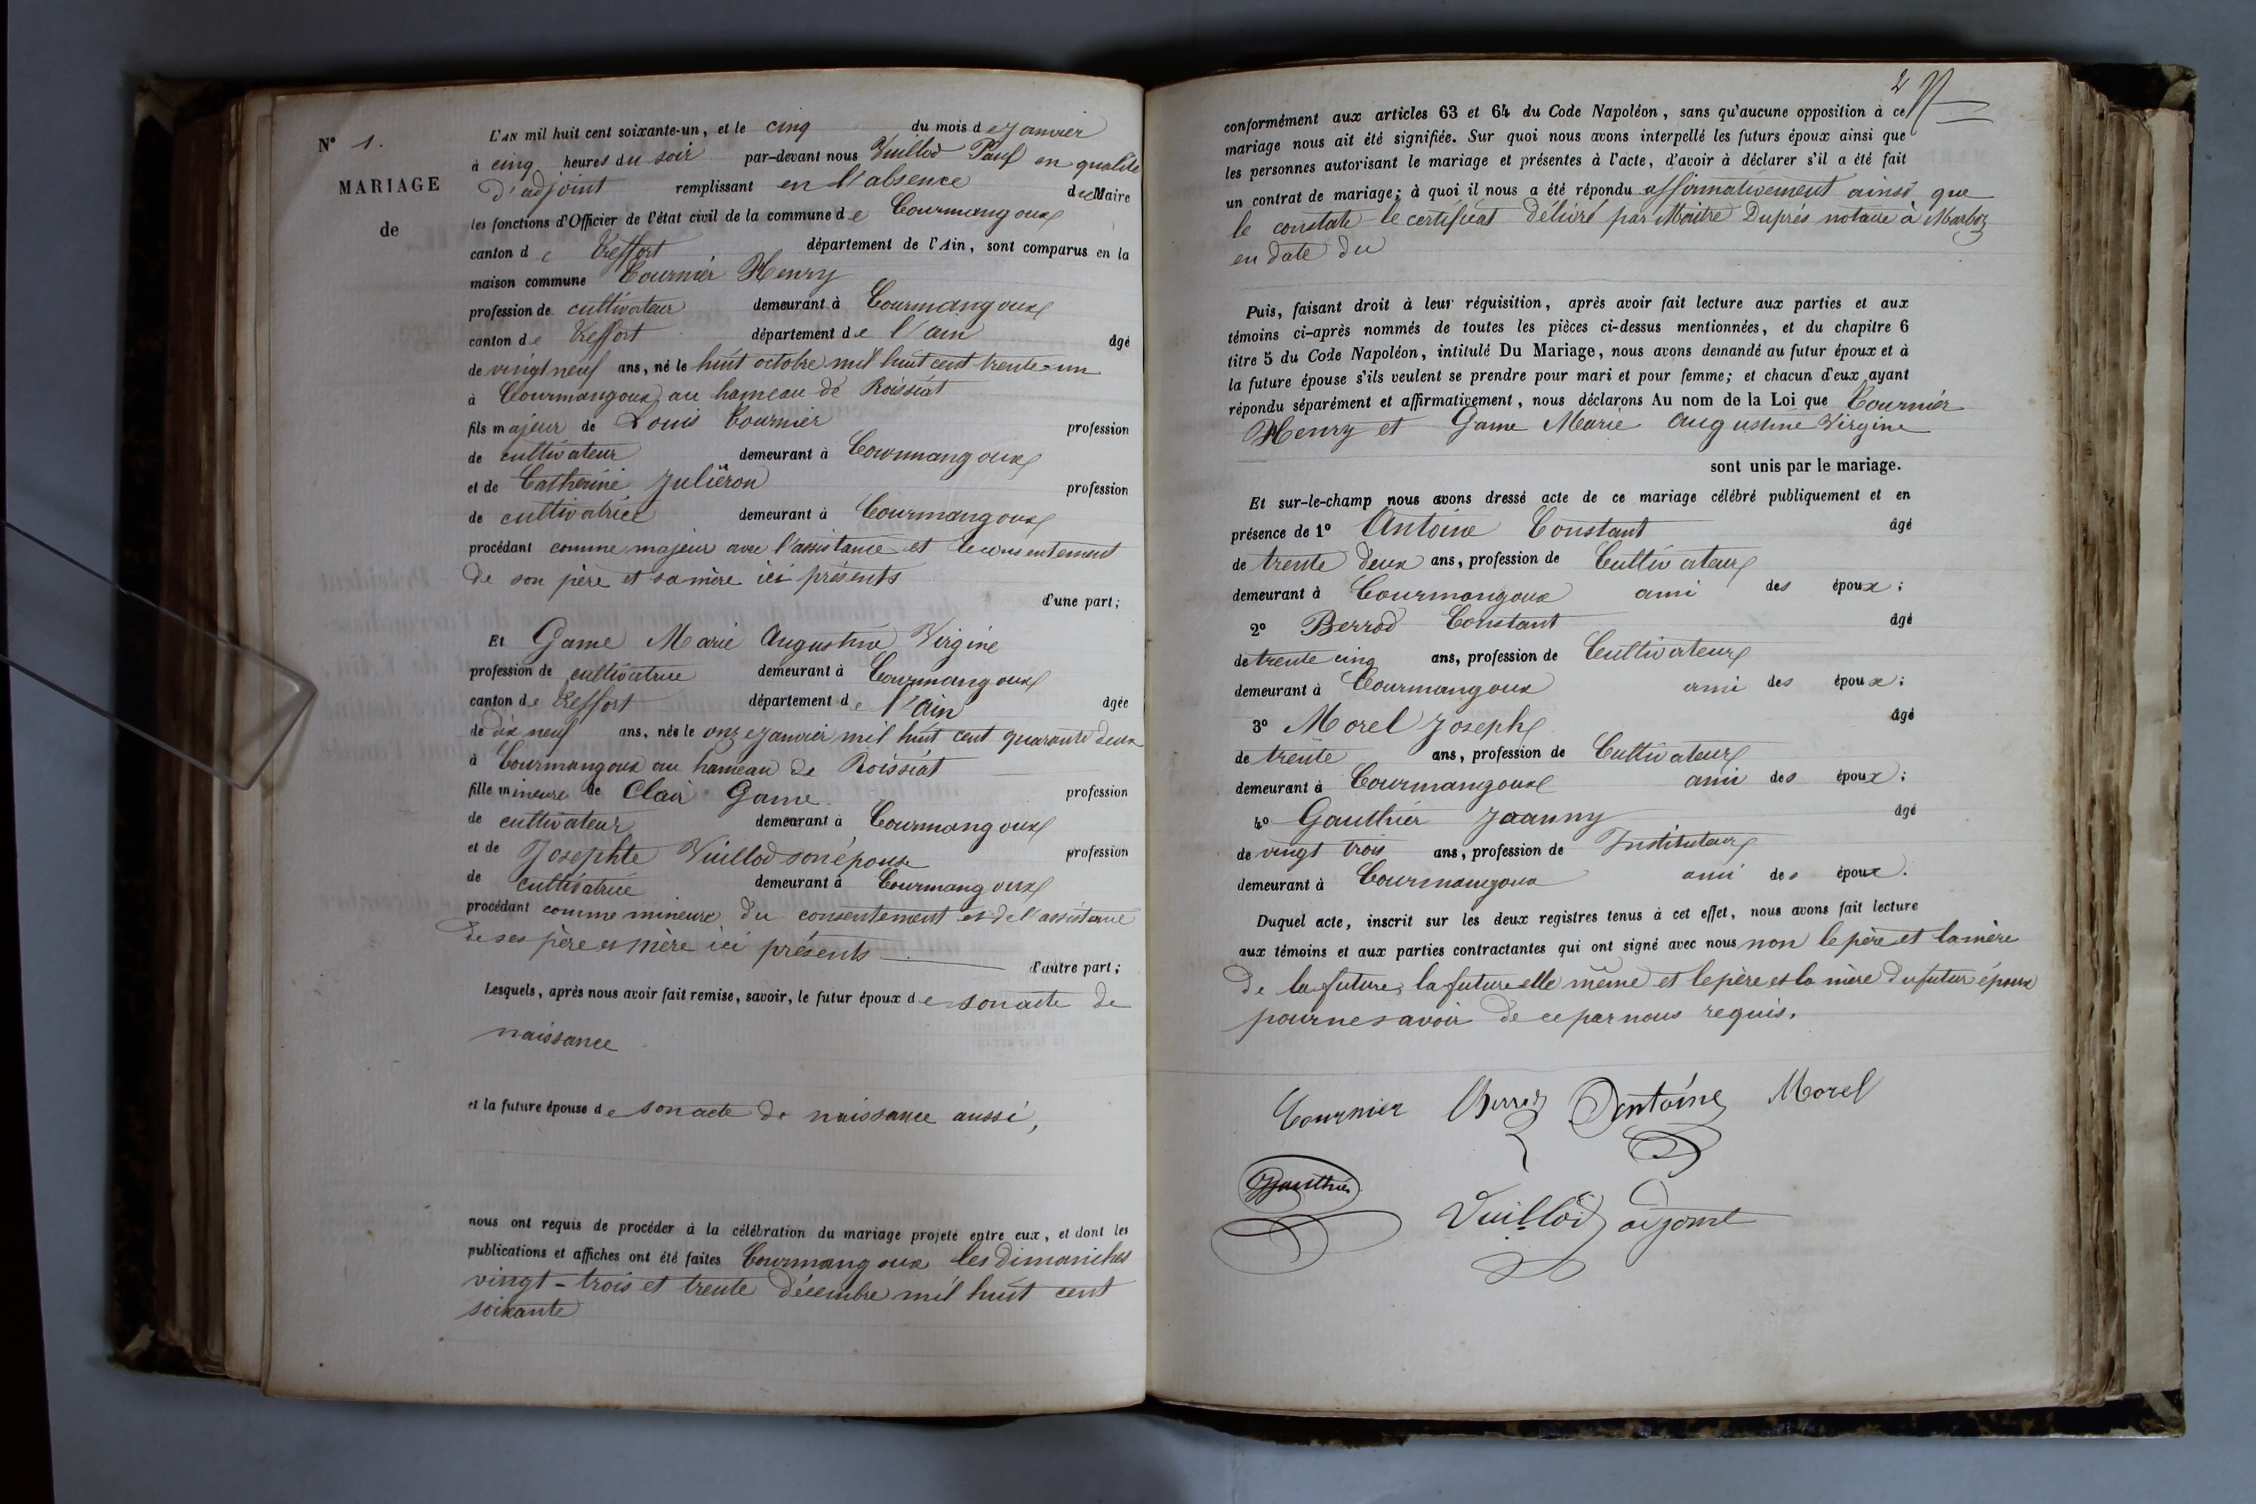 N° 1.
MARIAGE
de
L'AN mil huit cent soixante-un, et le cinq du mois de Janvier
à cinq heures du soir par-devant nous Vuillod Paul en qualité
d'adjoint remplissant en l'absence du Maire
les fonctions d'Officier de l'état civil de la commune de Courmangoux
canton de Treffort département de l'Ain, sont comparus en la
maison commune Cournier Henry
profession de cultivateur demeurant à Courmangoux
canton de Treffort département de l'ain âgé
de vingt neuf ans, né le huit octobre mil huit cent trente-un
à Courmangoux au hameau de Roissiat
fils majeur de Louis Cournier profession
de cultivateur demeurant à Courmangoux
et de Catherine Juliëron profession
de cultivatrice demeurant à Courmangoux
procédant comme majeur avec l'assistance et le consentement
de son père et sa mère ici présents
d'une part;
Et Game Marie Augustine Virgine
profession de cultivatrice demeurant à Courmangoux
canton de Treffort département de l'Ain âgée
de dix neuf ans, née le onze Janvier mil huit cent quarante deux
à Courmangoux au hameau de Roissiat
fille mineure de Clair Game profession
de cultivateur demeurant à Courmangoux
et de Josephte Vuillod son épouse profession
de cultivatrice demeurant à Courmangoux
procédant comme mineure du consentement et de l'assistance
de ses père et mère ici présents
d'autre part;
Lesquels, après nous avoir fait remise, savoir, le futur époux de son acte de
naissance
et la future épouse de son acte de naissance aussi,
nous ont requis de procéder à la célébration du mariage projeté entre eux, et dont les
publications et affiches ont été faites Courmangoux les dimanches
vingt-trois et trente décembre mil huit cent
soixante
2
conformément aux articles 63 et 64 du Code Napoléon, sans qu'aucune opposition à ce
mariage nous ait été signifiée. Sur quoi nous avons interpellé les futurs époux ainsi que
les personnes autorisant le mariage et présentes à l'acte, d'avoir à déclarer s'il a été fait
un contrat de mariage; à quoi il nous a été répondu affirmativement ainsi que
le constate le certificat délivré par Maitre Duprés notaire à Marboz
en date du
Puis, faisant droit à leur réquisition, après avoir fait lecture aux parties et aux
témoins ci-après nommés de toutes les pièces ci-dessus mentionnées, et du chapitre 6
titre 5 du Code Napoléon, intitulé Du Mariage, nous avons demandé au futur époux et à
la future épouse s'ils veulent se prendre pour mari et pour femme; et chacun d'eux ayant
répondu séparément et affirmativement, nous déclarons Au nom de la Loi que Cournier
Henry et Game Marie Augustine Virgine
sont unis par le mariage.
Et sur-le-champ nous avons dressé acte de ce mariage célébré publiquement et en
présence de 1° Antoine Constant âgé
de trente deux ans, profession de Cultivateur
demeurant à Courmangoux ami des époux;
2° Berrod Constant âgé
de trente cinq ans, profession de Cultivateur
demeurant à Courmangoux ami des époux;
3° Morel Joseph âgé
de trente ans, profession de Cultivateur
demeurant à Courmangoux ami des époux;
4° Gauthier Joanny âgé
de vingt trois ans, profession de Instituteur
demeurant à Courmangoux ami des époux.
Duquel acte, inscrit sur les deux registres tenus à cet effet, nous avons fait lecture
aux témoins et aux parties contractantes qui ont signé avec nous non le père et la mère
de la future, la future elle même et le père et la mère du futur époux
pour ne savoir de ce par nous requis.
Cournier Berrod Antoine Morel
Gauthier
Vuillod adjoint